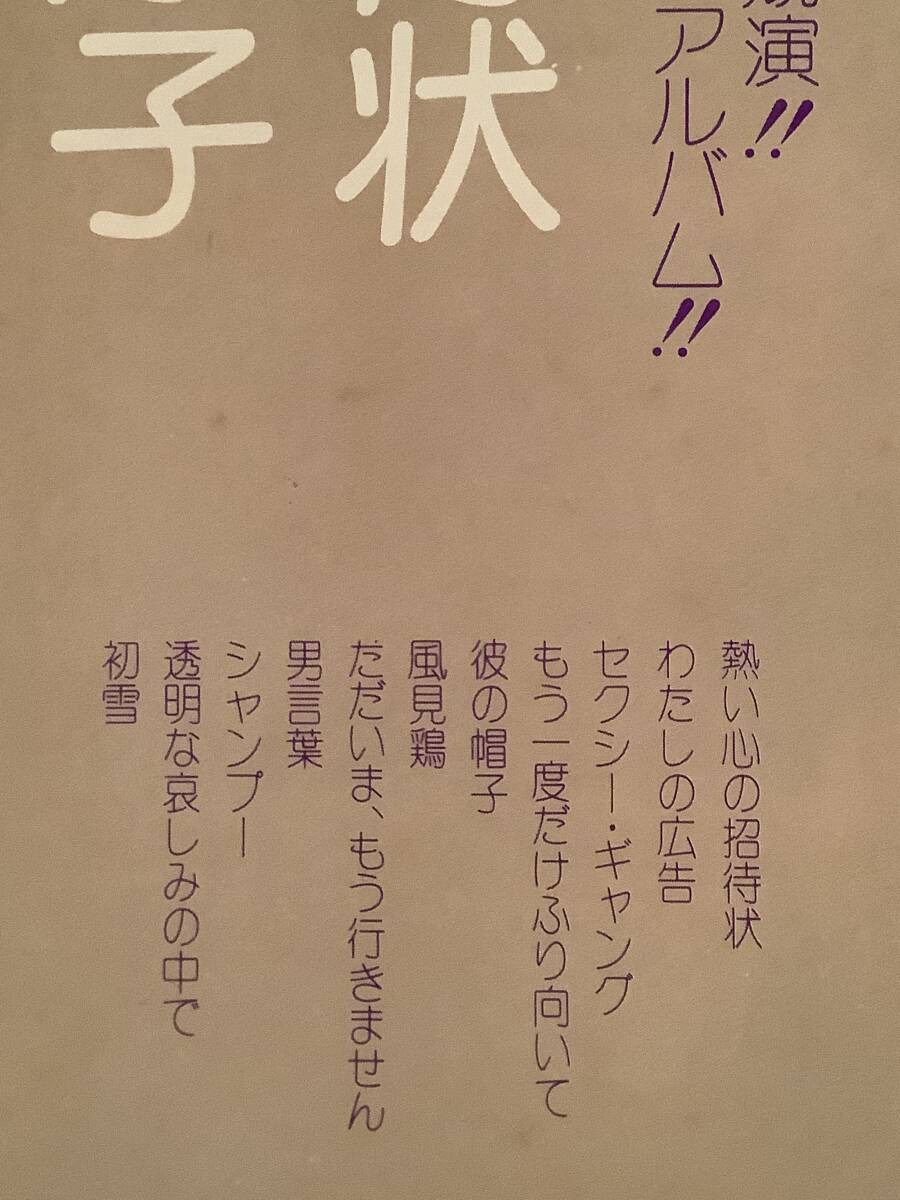 演!!
アルバム!!
状
子
熱い心の招待状
わたしの広告
セクシー・ギャング
もう一度だけふり向いて
彼の帽子
風見鶏
ただいま、もう行きません
男言葉
シャンプー
透明な哀しみの中で
初雪